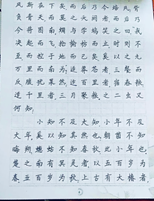 风背负青天而莫之夭阏者而后乃
今将图南蜩与学鸠笑之曰我
决起而飞抢榆枋而止时则不
至而控于地而已矣奚以之九万里
而南为适莽苍者三餐而反
腹犹果然适百里者宿舂粮
适千里者三月聚粮之二虫又
何知
小知不及大知小年不及
大年奚以知其然也朝菌不知
晦朔蟪蛄不知春秋此小年也
楚之南有冥灵者以五百岁为
春五百岁为秋上古有大椿者